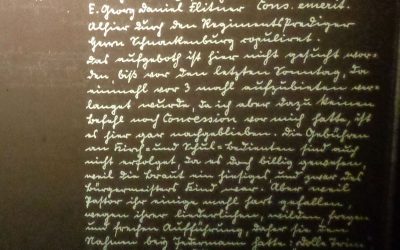 E. Georg Daniel Elitner Cons. emerit.
Alhier durch den Regimentsprediger
Herrn Schnackenburg copuliret.
Das aufgeboth ist hier nicht gesucht wor-
den, biß vor dem letzten Sonntag, da
einmahl vor 3 mahl aufzubieten ver-
langet wurde, da ich aber dazu keinen
Befehl noch Concession vor mich hatte, ist
es hier gar nachgeblieben. Die Gebühren
an Kirch- und Schul-bedienten sind auch
nicht erfolget, da es doch billig gewesen,
weil die Braut ein hiesiges und zwar des
bürgermeisters Kind war. Aber weil
Pastor ihr einige mahl hart gefallen,
wegen ihrer liederlichen, wilden, fregen
und frechen Aufführung, daher sie den
Nahmen bey Jedermann hatte, dolle